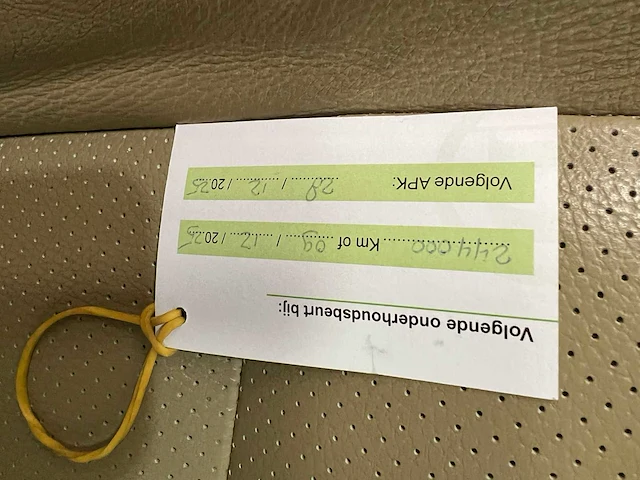 Volgende onderhoudsbeurt bij:
244.000 Km of 09 / 12 / 2025
Volgende APK: 29 / 12 / 2025